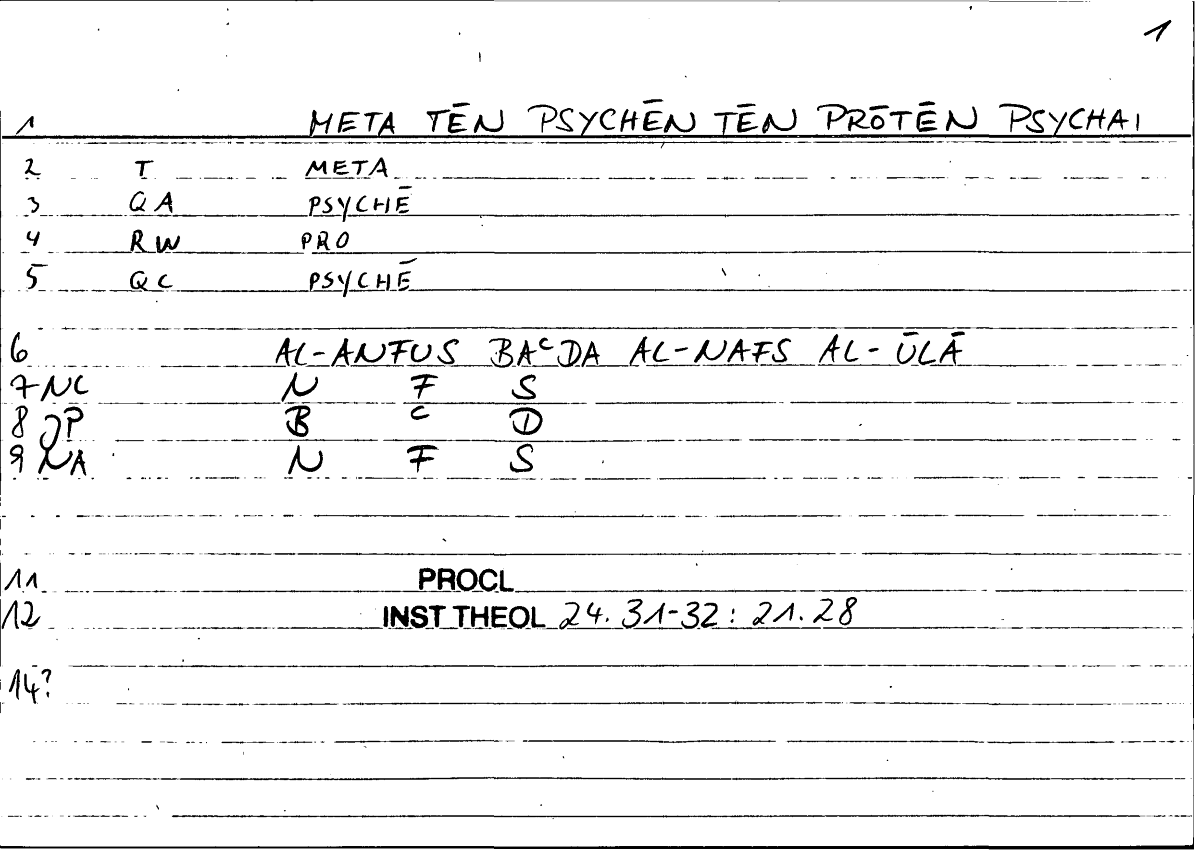 1
1 META TĒN PSYCHĒN TĒN PRŌTĒN PSYCHAI
2 T META
3 QA PSYCHĒ
4 RW PRO
5 QC PSYCHĒ
6 AL-ANFUS BAᶜDA AL-NAFS AL-ŪLĀ
7 NC N F S
8 JP B ᶜ D
9 NA N F S
11 PROCL
12 INST THEOL 24.31-32: 21.28
14?